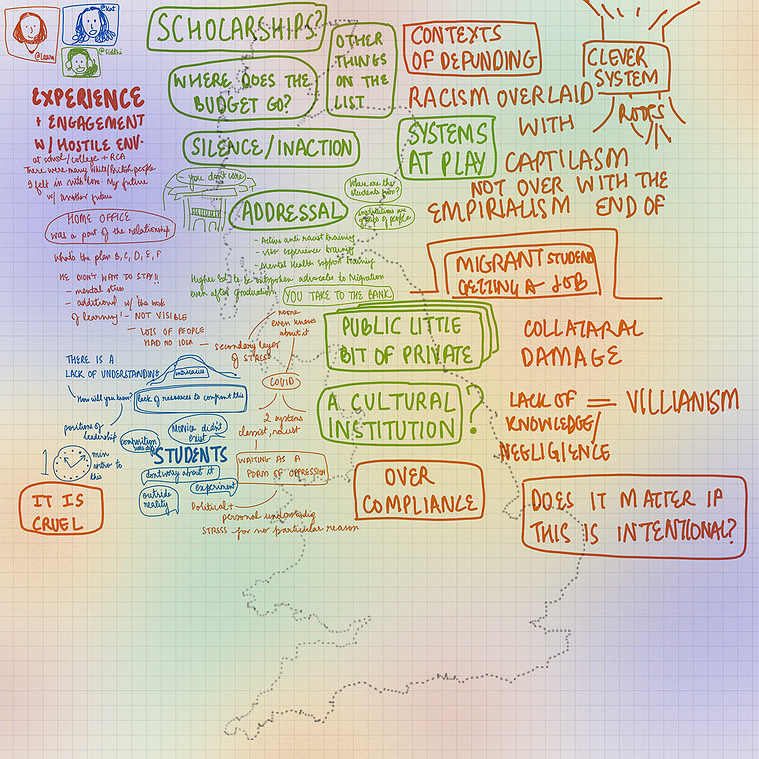 @Laura
@Kat
@Siddhi
EXPERIENCE
+ ENGAGEMENT
W/ HOSTILE ENV.
at school/college + RCA
There were many White/British people
I fell in with love my future
w/ another future
HOME OFFICE
was a part of the relationship
Whats the plan B, C, D, E, F
HE DIDN'T WANT TO STAY!!
- mental stress
- additional w/ the work
of learning! - NOT VISIBLE
- LOTS OF PEOPLE
HAD NO IDEA
- secondary layer
of STRESS
THERE IS A
LACK OF UNDERSTANDING
intricacies
How will you know?
lack of resources to confront this
positions of
leadership
composition
was diff
MONICA didn't
exist
STUDENTS
1
min
intro to
this
dont worry about it
outside
reality
experiment
IT IS
CRUEL
SCHOLARSHIPS?
WHERE DOES THE
BUDGET GO?
OTHER
THINGS
ON THE
LIST
SILENCE/INACTION
you don't care
ADDRESSAL
Where are the
students from?
institutions are
groups of people
- Active anti racist training
- visa experience training
- Mental Health support training
Higher Ed to be outspoken advocates to Migration
even after graduation
YOU TAKE TO THE BANK
noone
even knows
about it
COVID
2 systems
classist, racist
WAITING AS A
FORM OF OPPRESSION
Political +
personal understanding
STRESS for no particular reason
PUBLIC LITTLE
BIT OF PRIVATE
A CULTURAL
INSTITUTION
?
OVER
COMPLIANCE
CONTEXTS
OF DEFUNDING
CLEVER
SYSTEM
ROOTS
RACISM OVERLAID
WITH
CAPTILASM
SYSTEMS
AT PLAY
NOT OVER WITH THE
EMPIRIALISM END OF
MIGRANT STUDENT
GETTING A JOB
COLLATARAL
DAMAGE
LACK OF = VILLIANISM
KNOWLEDGE/
NEGLIGIENCE
DOES IT MATTER IF
THIS IS INTENTIONAL?